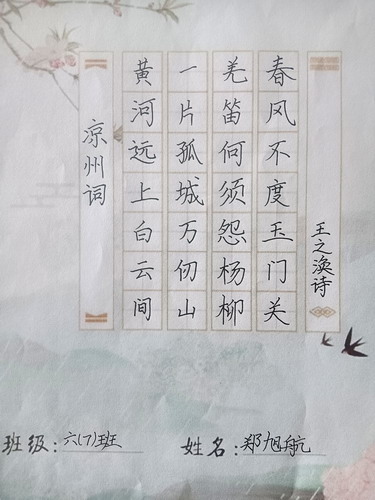 凉州词
黄河远上白云间
一片孤城万仞山
羌笛何须怨杨柳
春风不度玉门关
王之涣诗
班级：六(7)班 姓名：郑旭航